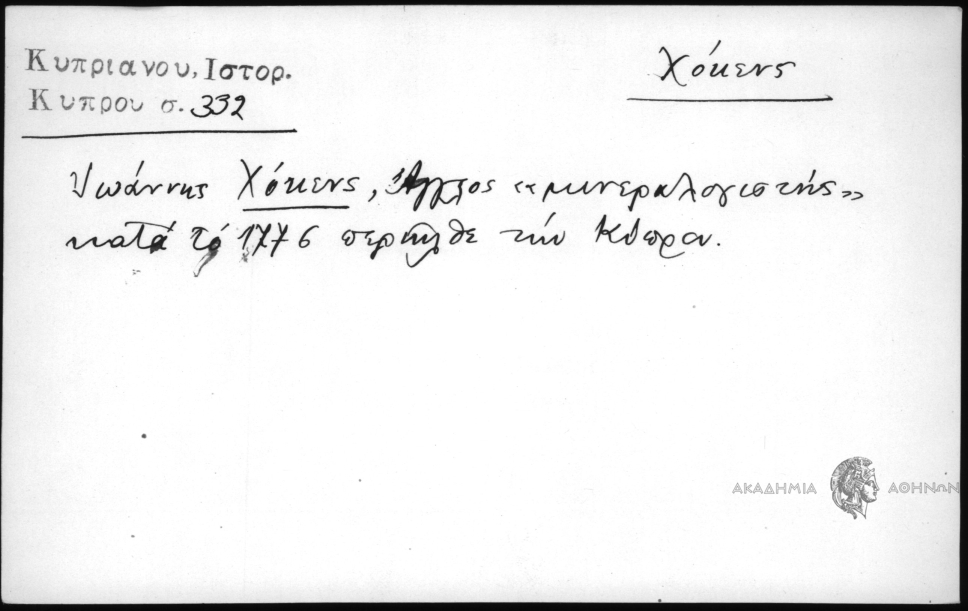 Κυπριανου, Ιστορ.
Κυπρου σ. 332
Χόκενς
Ἰωάννης Χόκενς, Ἄγγλος «μινεραλογιστής»
κατά τό 1776 περιῆλθε τήν Κύπρον.
ΑΚΑΔΗΜΙΑ ΑΘΗΝΩΝ